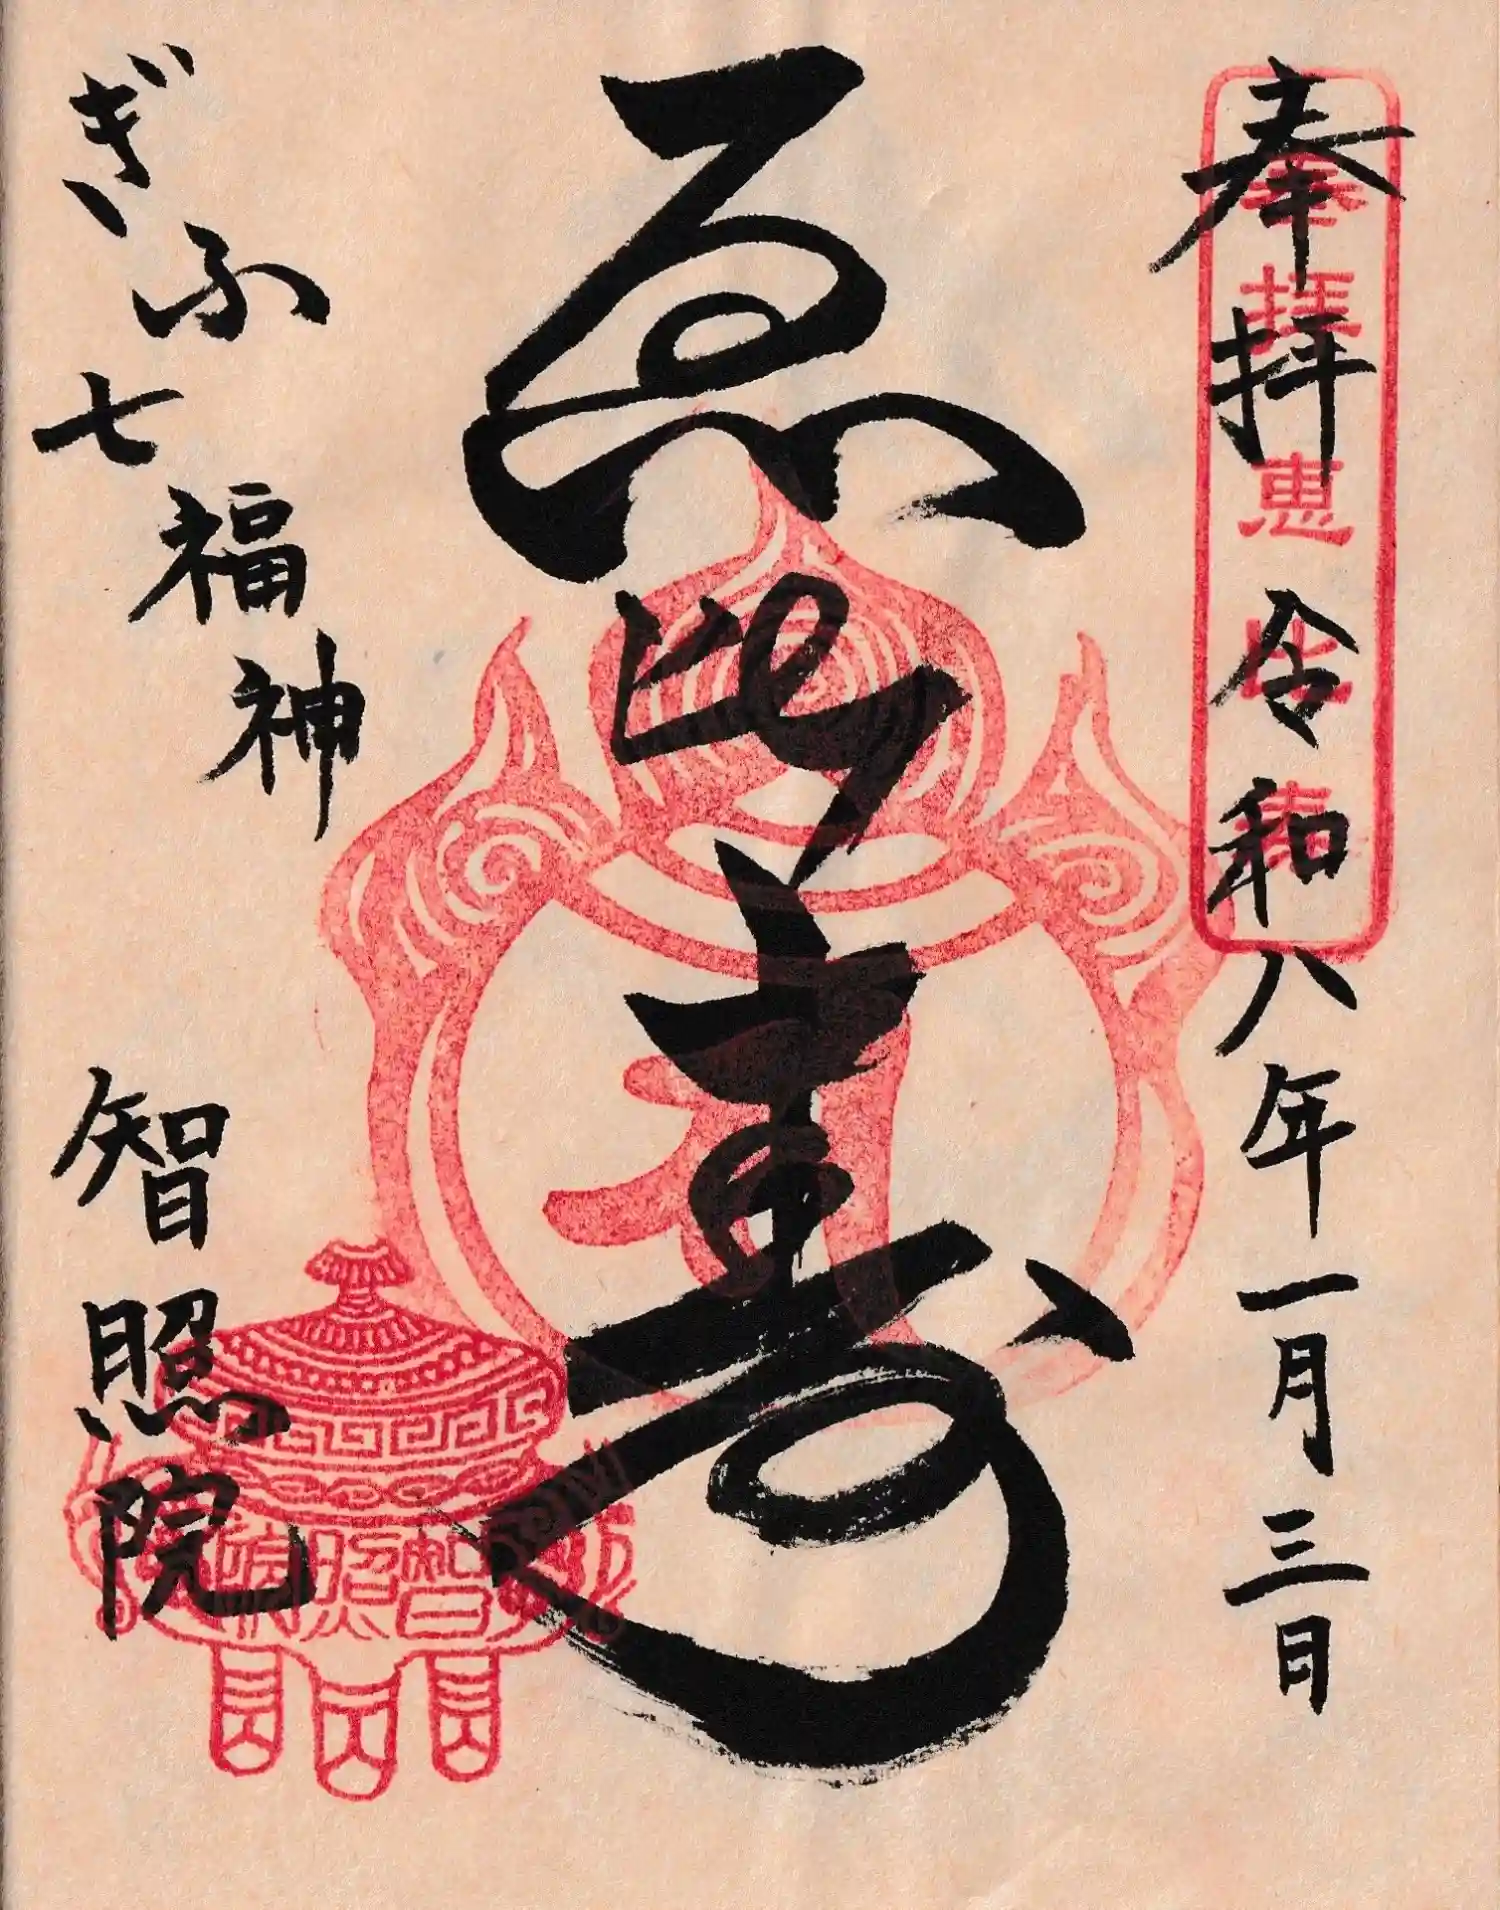 奉拝 令和八年一月三日
奉拝 恵比寿
ゑ比寿
ぎふ七福神
智照院
智照院